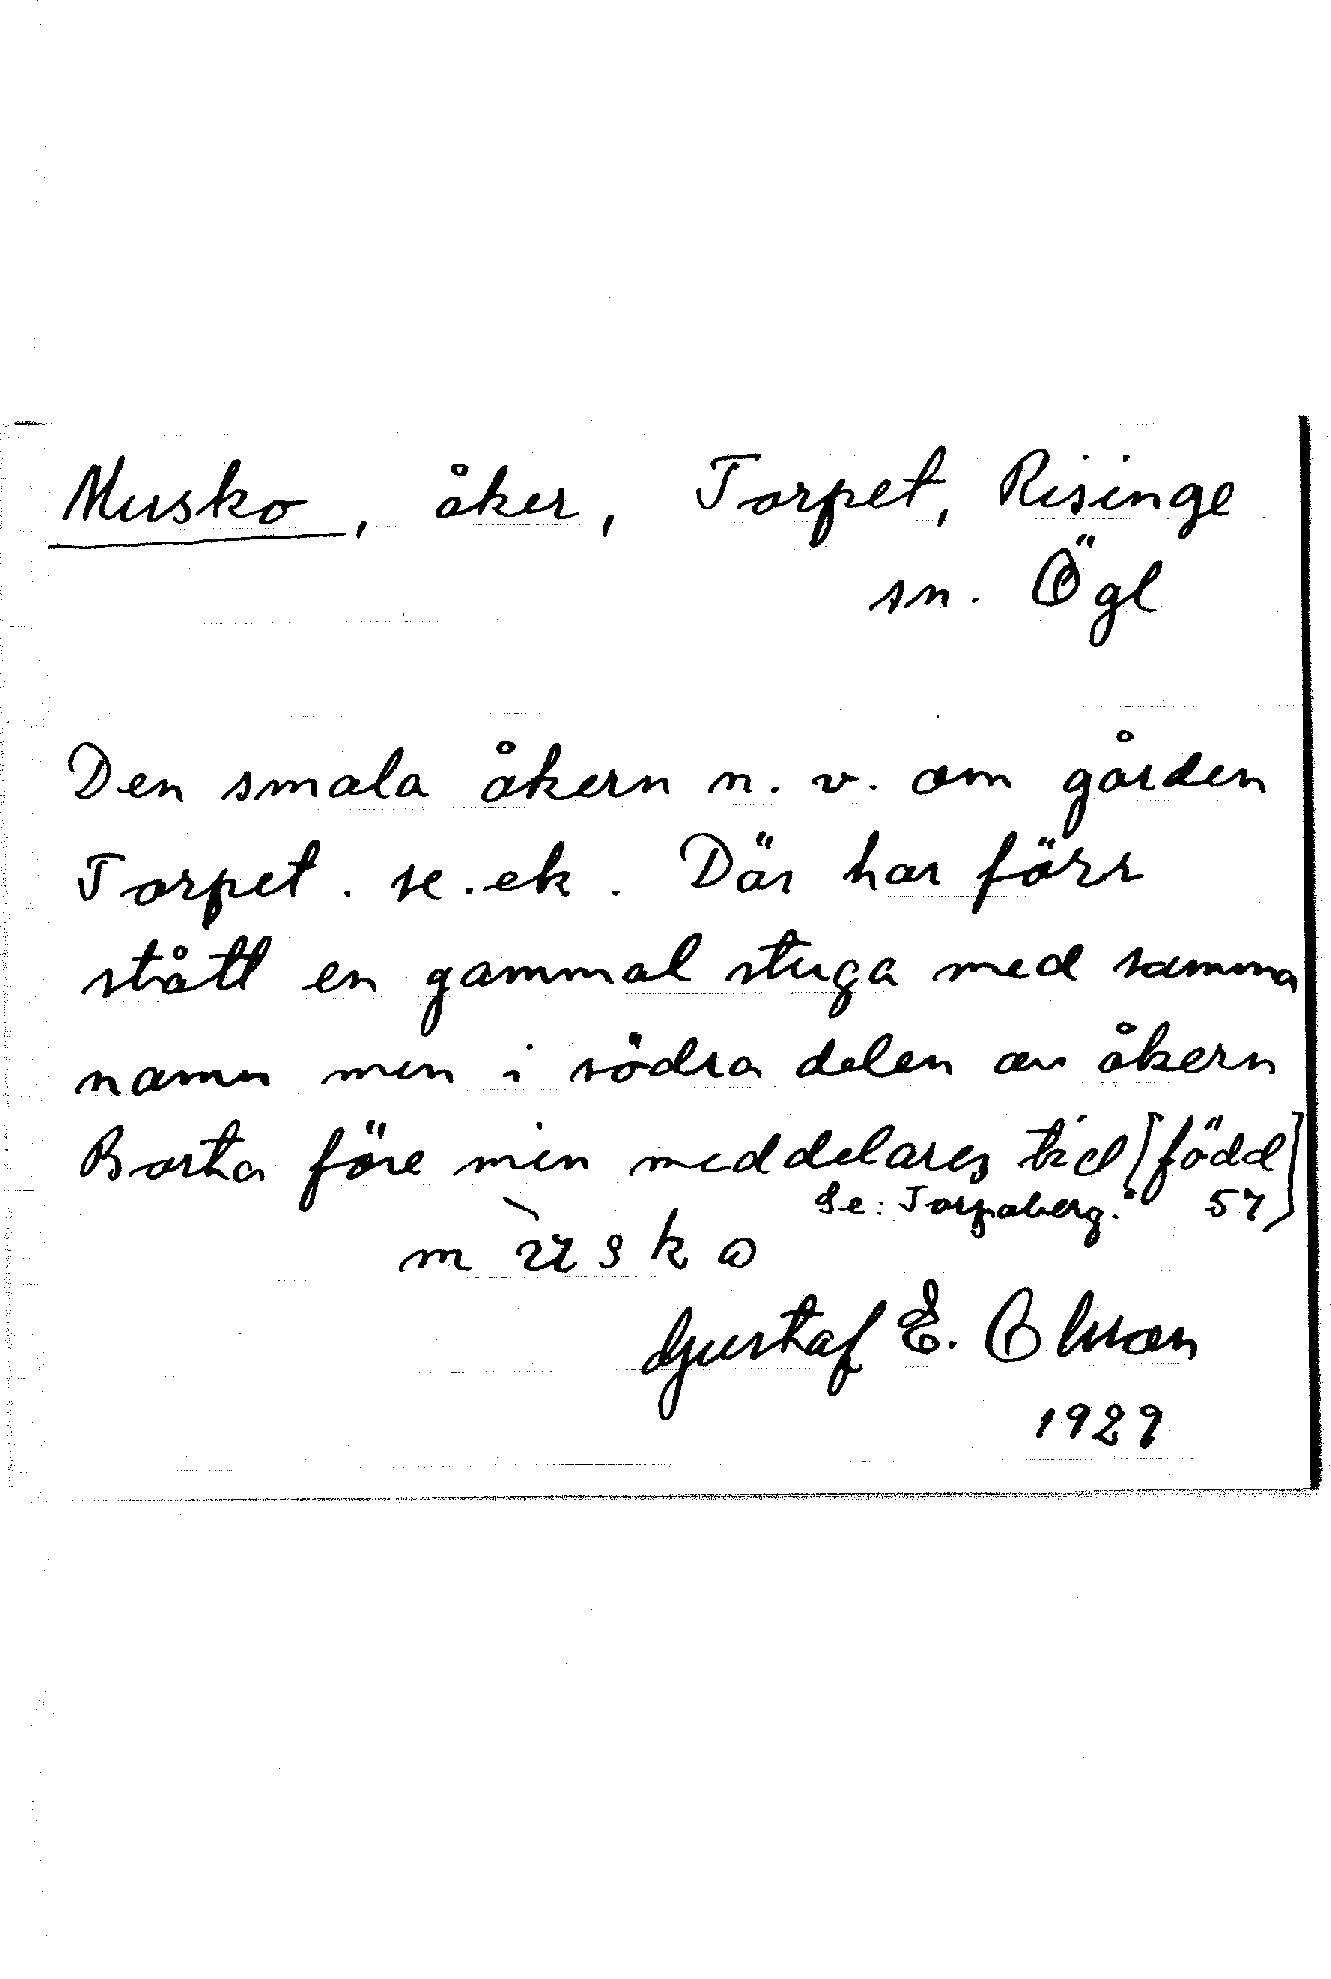 Musko, åker, Torpet, Risinge
sn. Ögl
Den smala åkern n. v. om gården
Torpet. se. ek. Där har förr
stått en gammal stuga med samma
namn men i södra delen av åkern
Borta före min meddelares tid [född
57]
Se: Torpaberg."
Gustaf E. Olsson
1929